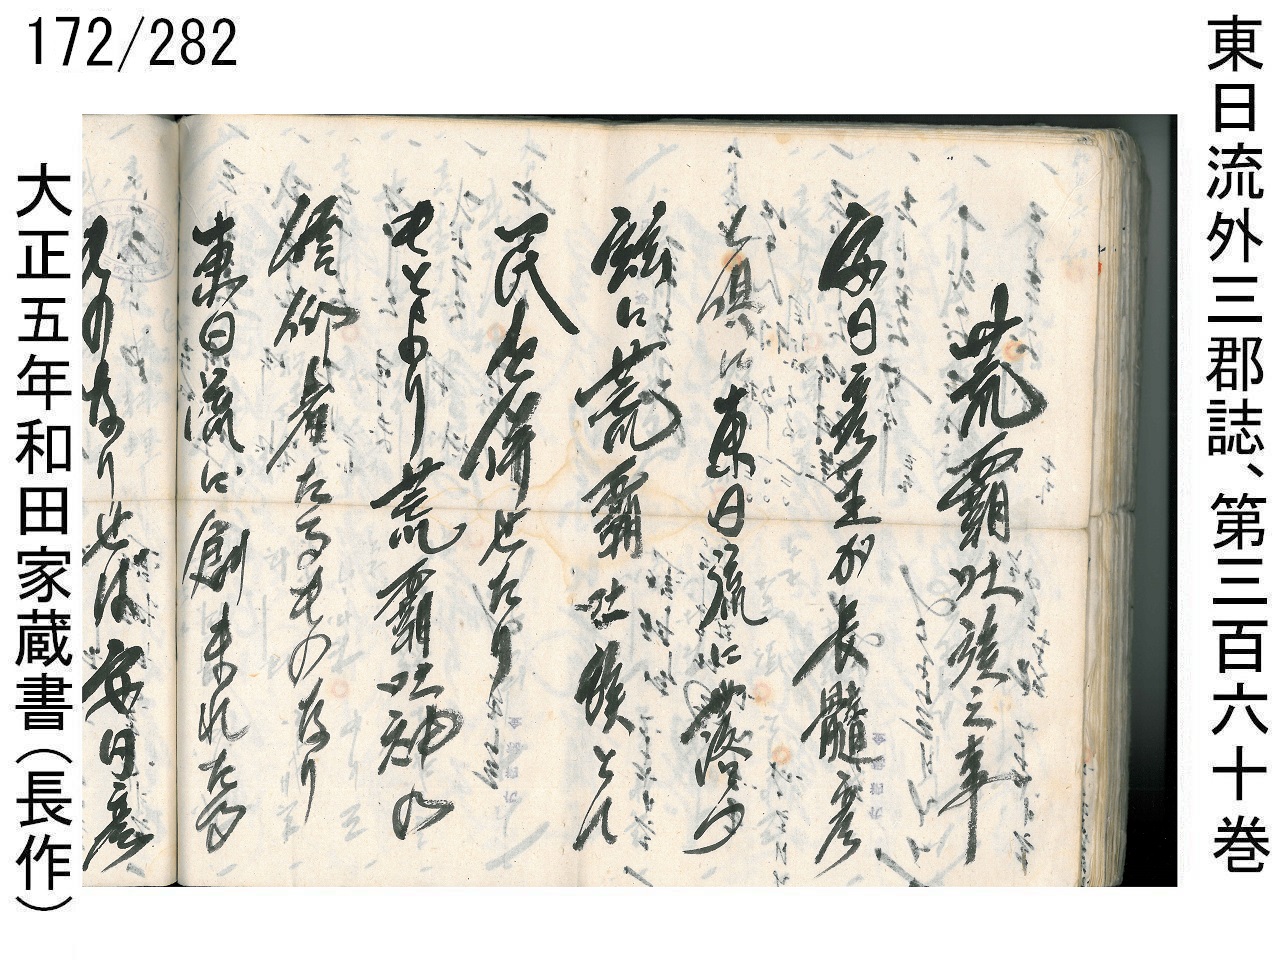 172/282
東日流外三郡誌、第三百六十巻
荒覇吐族之事
安日彦王が長髄彦
と倶に東日流に落
茲に荒覇吐族とし
民を併せたり
もとより荒覇吐神の
信仰者たるものなり
東日流に創まれたる
ものなりせば安日彦
大正五年和田家蔵書（長作）